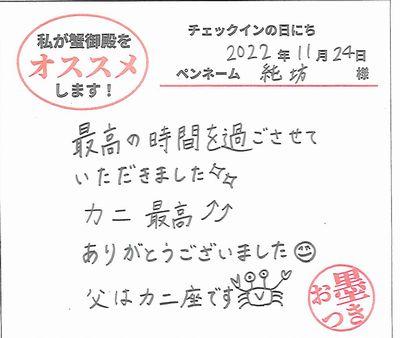 私が蟹御殿を
オススメ
します！
チェックインの日にち
2022年11月24日
ペンネーム 純坊 様
最高の時間を過ごさせて
いただきました
カニ 最高↑↑
ありがとうございました
父はカニ座です
お墨
つき